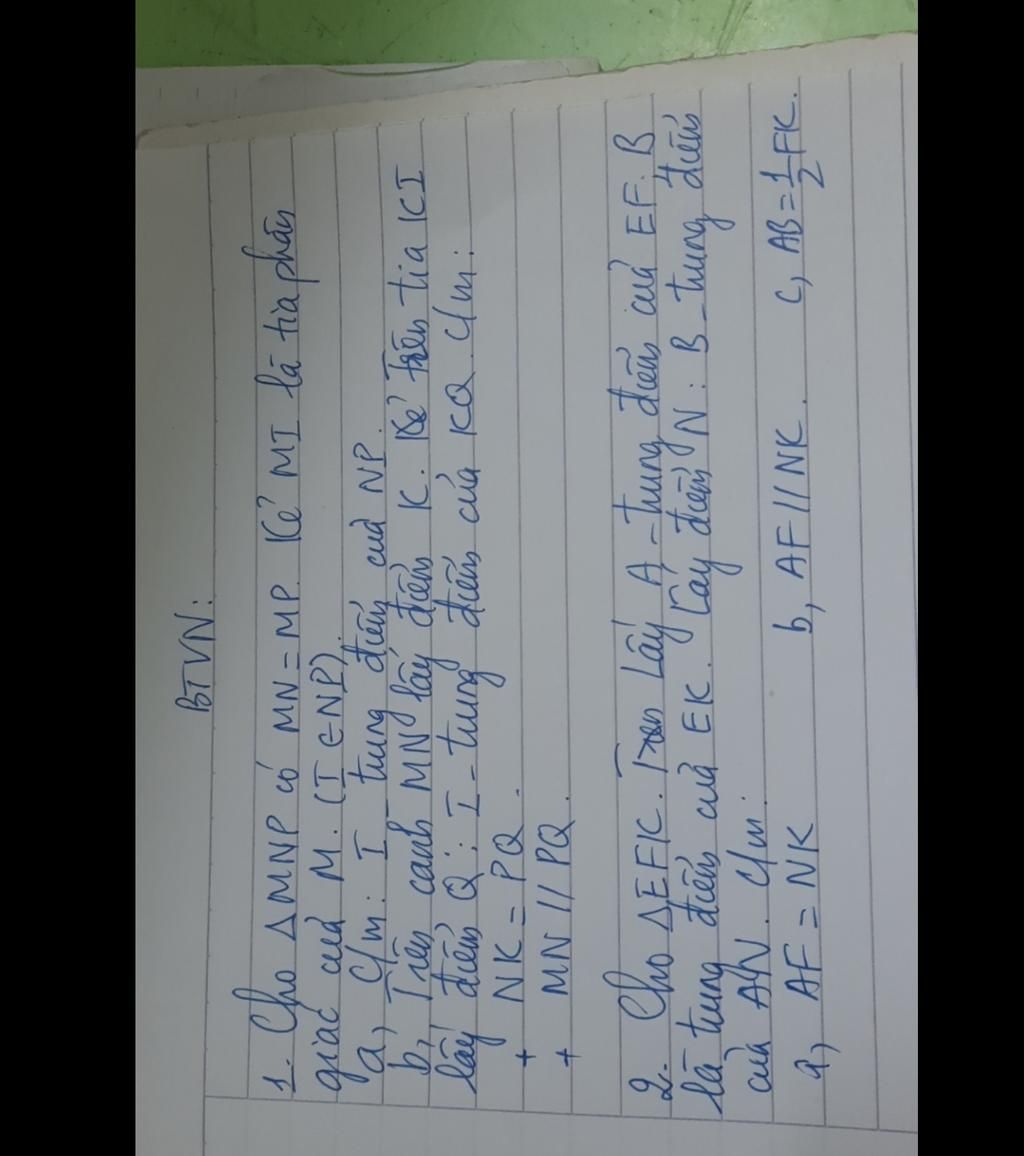 BTVN:
1. Cho ΔMNP có MN = MP. Kẻ MI là tia phân
giác của M. (I ∈ NP).
a, C/m: I - trung điểm của NP.
b, Trên cạnh MN lấy điểm K. Kẻ Trên tia KI
lấy điểm Q: I - trung điểm của KQ. C/m:
+ NK = PQ.
+ MN // PQ.
2. Cho ΔEFK. Lấy A - trung điểm của EF. B
là trung điểm của EK. Lấy điểm N: B - trung điểm
của AN. C/m:
a, AF = NK b, AF // NK. c, AB = 1/2 FK.